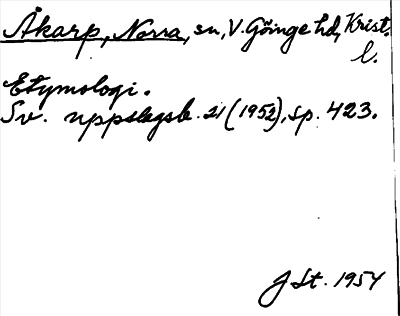 Åkarp, Norra, sn, V. Göinge hd, Krist.
l.
Etymologi.
Sv. uppslagsb. 21 (1952), sp. 423.
J St. 1954